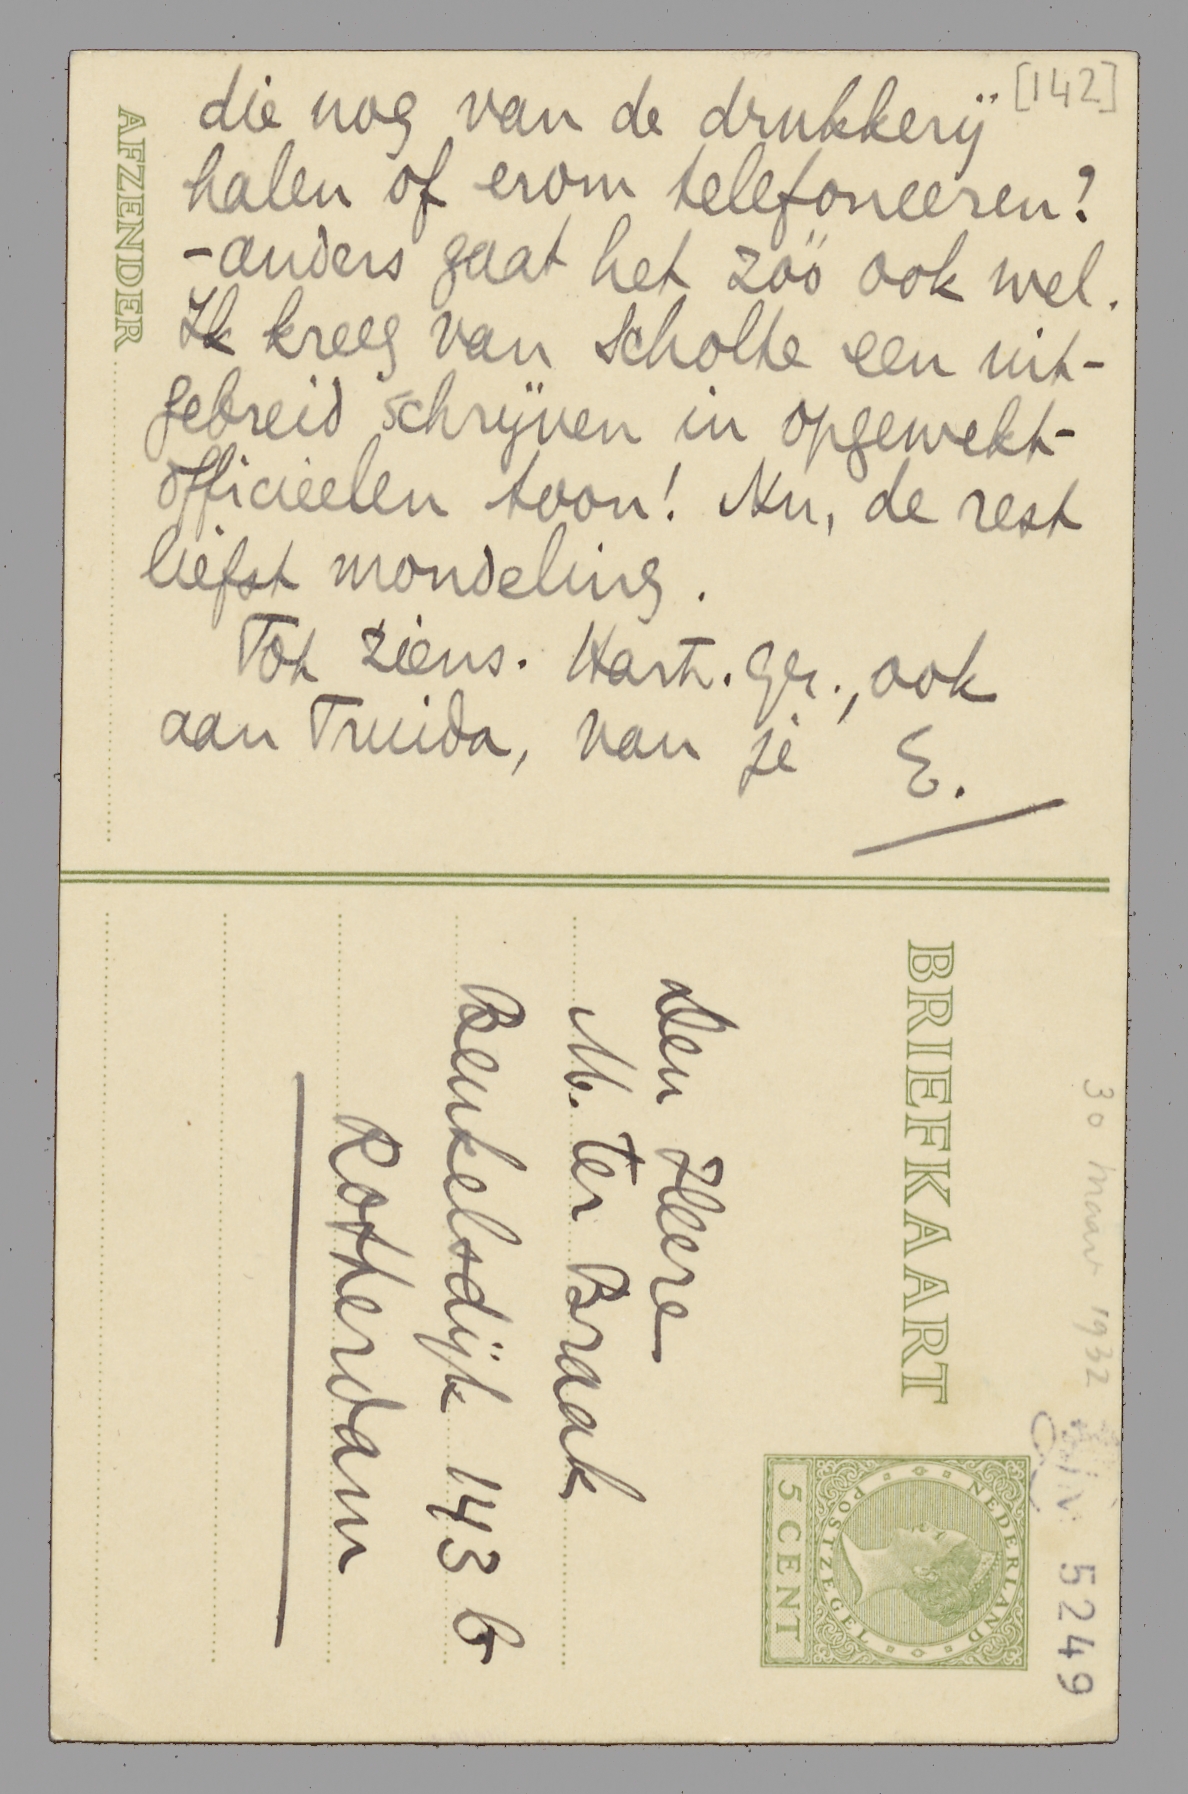 [142]
die nog van de drukkerij
halen of erom telefoneeren?
- anders gaat het zóó ook wel.
Ik kreeg van Scholte een uit-
gebreid schrijven in opgewekt-
officieelen toon! Nu, de rest
liefst mondeling.
Tot ziens. Hart. gr., ook
aan Truida, van je E.
AFZENDER
BRIEFKAART
30 maart 1932
5249
NEDERLAND
POSTZEGEL
5 CENT
Den Heere
M. ter Braak
Beukelsdijk 143 b
Rotterdam